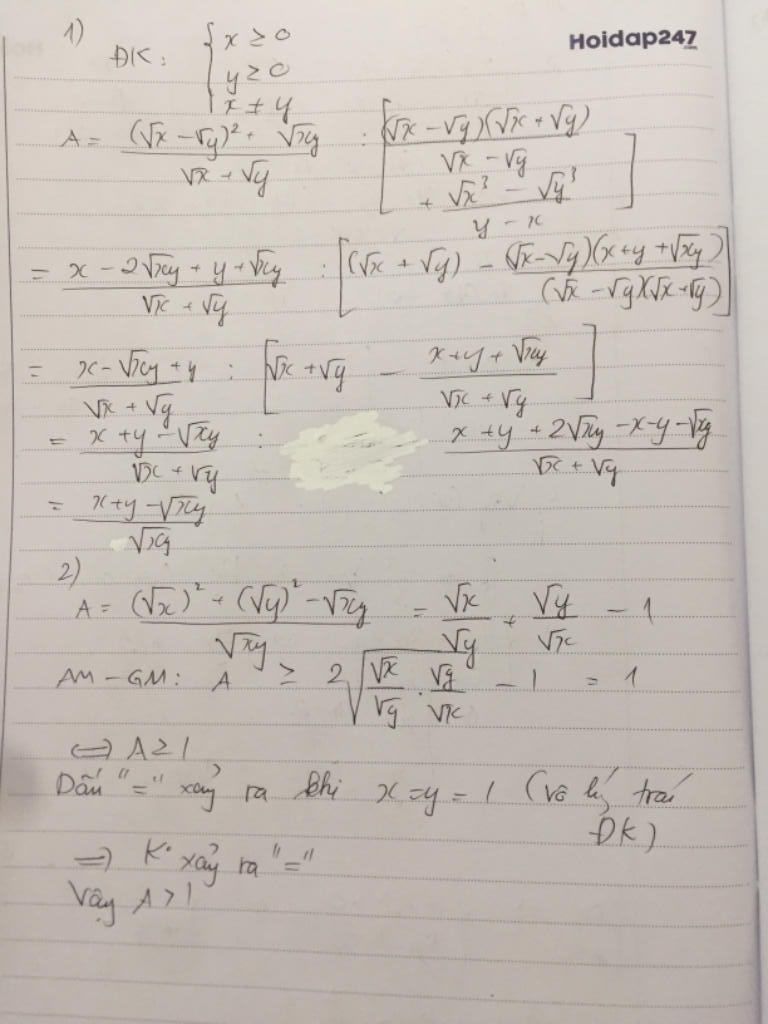 1)
ĐK: { x ≥ 0
y ≥ 0
x ≠ y
Hoidap247.com
A = ((√x - √y)² + √xy)/(√x + √y) : [((√x - √y)(√x + √y))/(√x - √y)
+ (√x³ - √y³)/(y - x)]
= (x - 2√xy + y + √xy)/(√x + √y) : [(√x + √y) - ((√x - √y)(x + y + √xy))/((√x - √y)(√x + √y))]
= (x - √xy + y)/(√x + √y) : [√x + √y - (x + y + √xy)/(√x + √y)]
= (x + y - √xy)/(√x + √y) : (x + y + 2√xy - x - y - √xy)/(√x + √y)
= (x + y - √xy)/√xy
2)
A = ((√x)² + (√y)² - √xy)/√xy = √x/√y + √y/√x - 1
AM - GM: A ≥ 2√(√x/√y . √y/√x) - 1 = 1
⇔ A ≥ 1
Dấu "=" xảy ra khi x = y = 1 (vô lý trái
ĐK)
⇒ K° xảy ra "="
Vậy A > 1